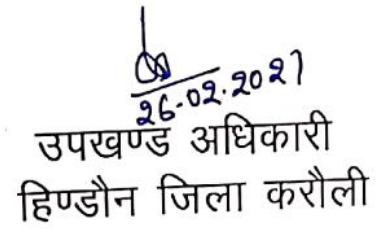 26-02-2021
उपखण्ड अधिकारी
हिण्डौन जिला करौली